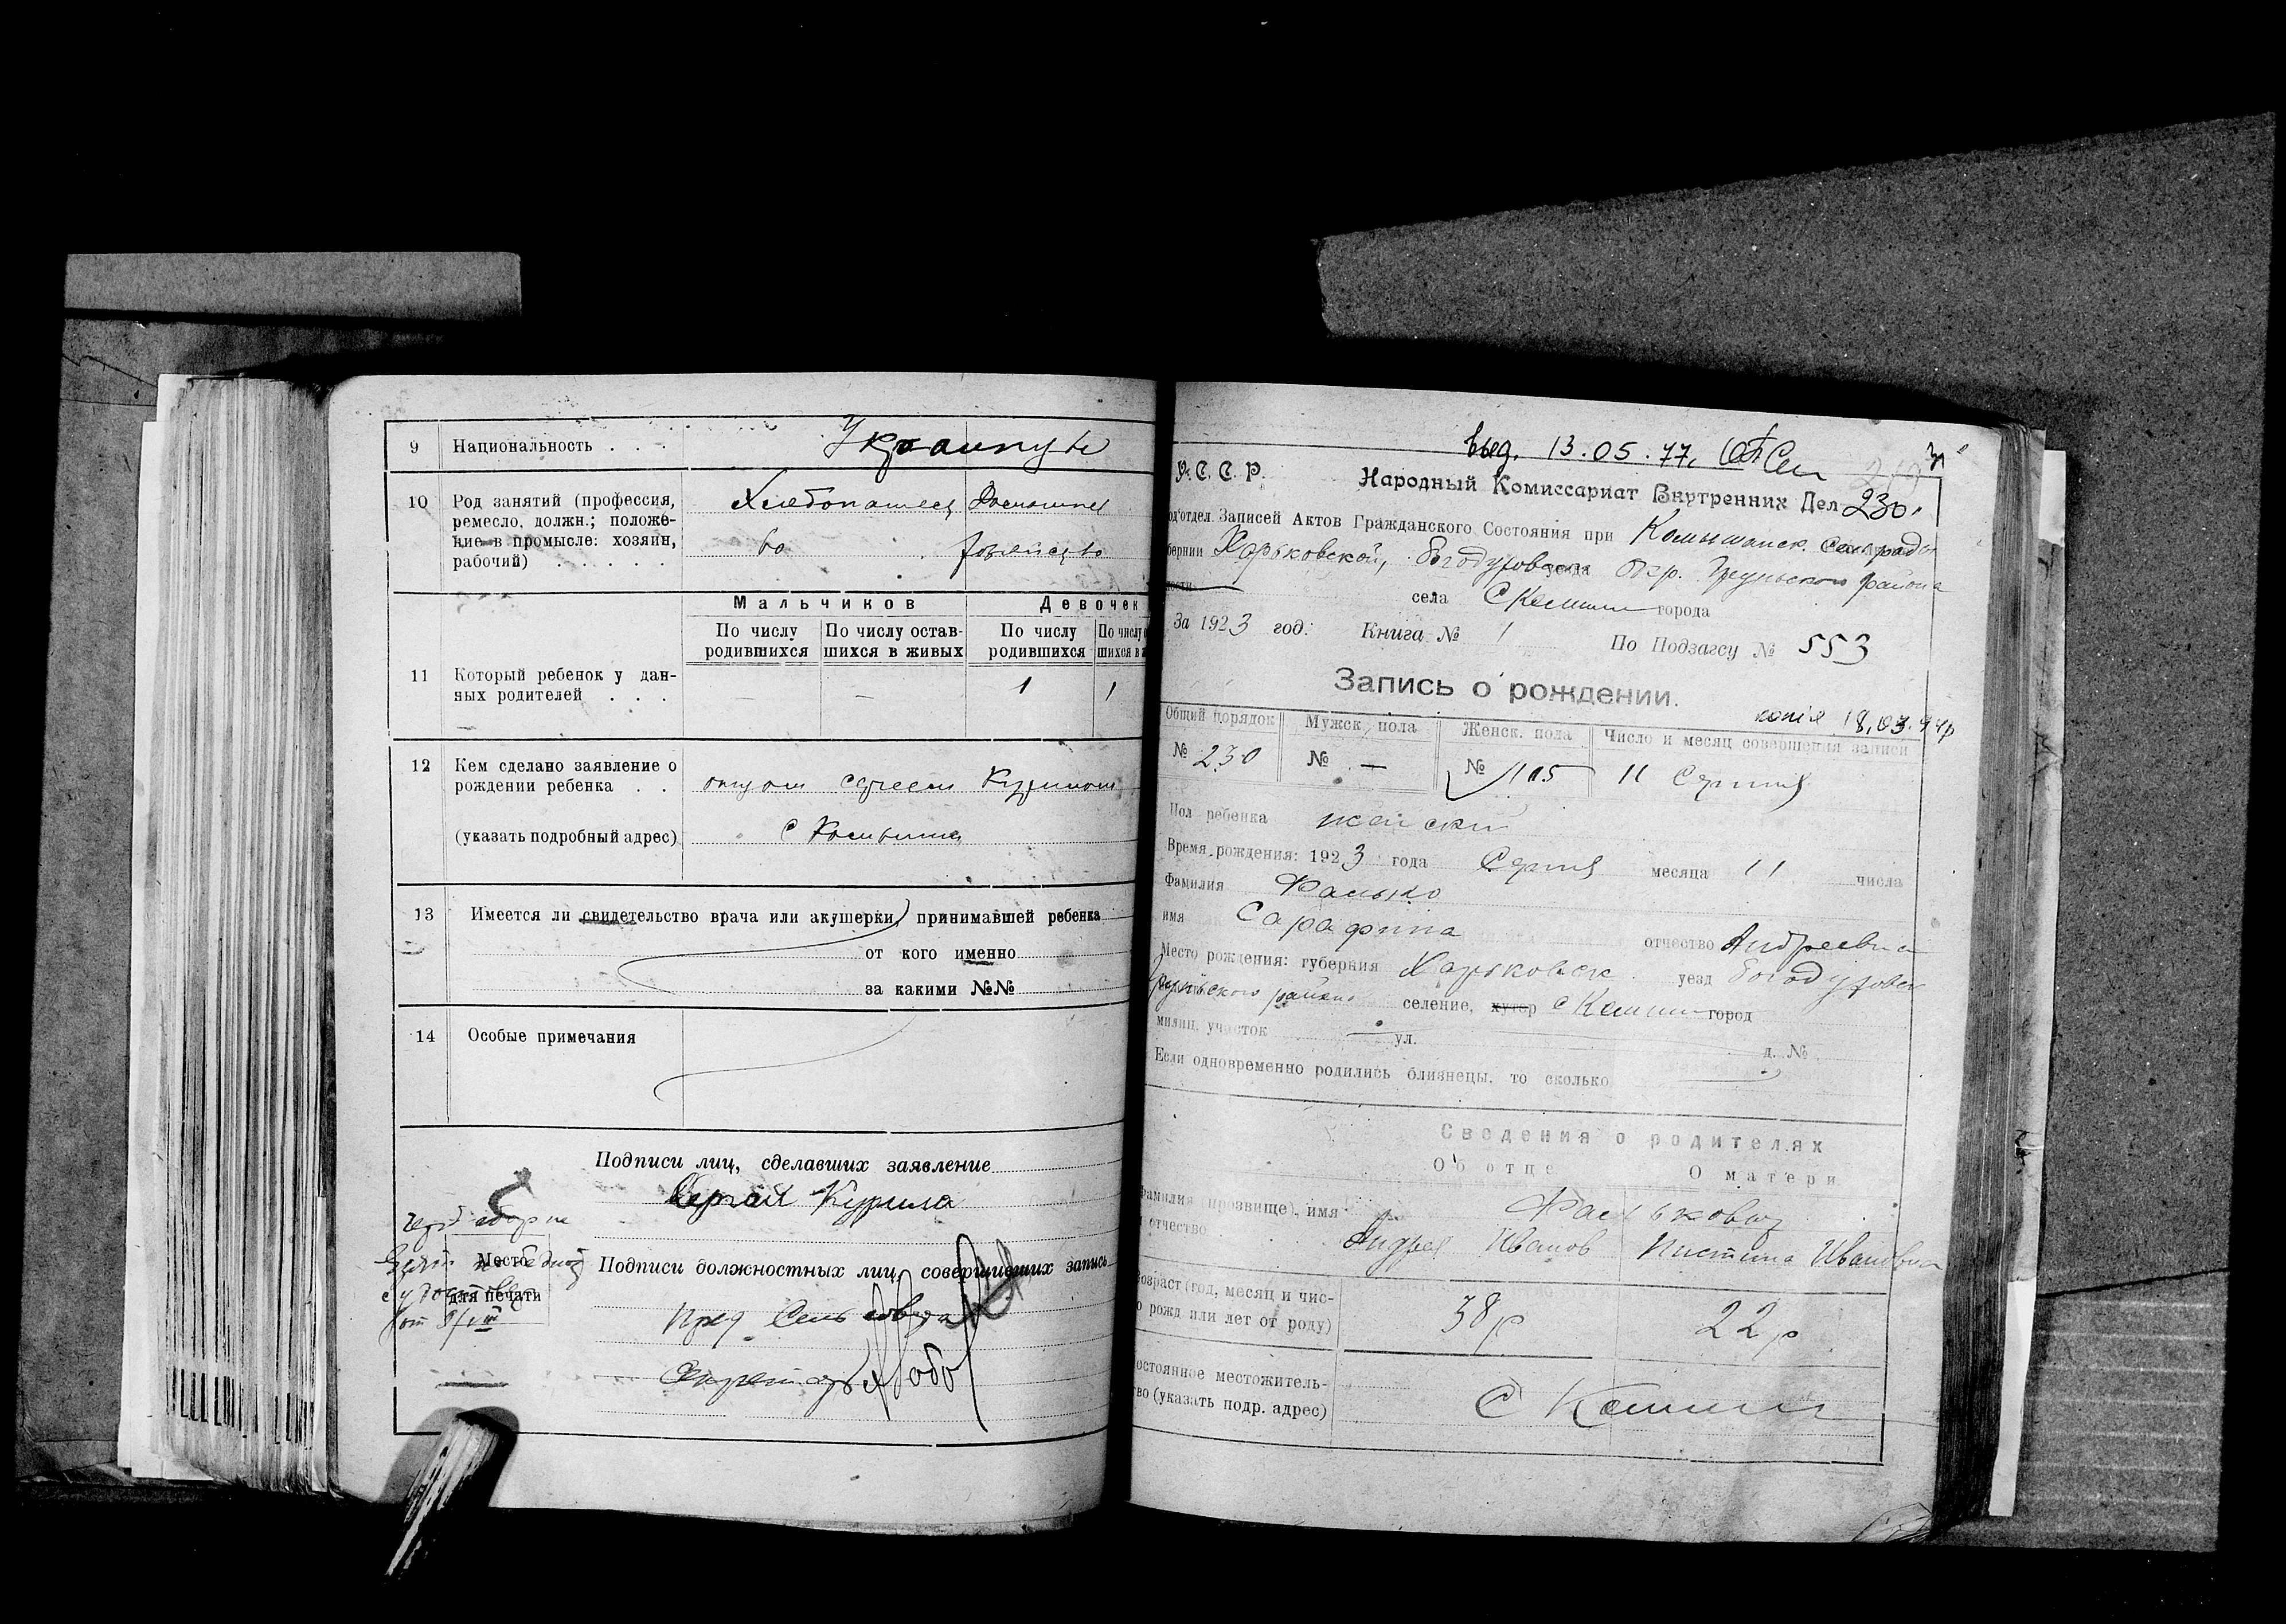 9 Национальность . . . Украинцы
10 Род занятий (профессия, Хлебопашес Домашнее
ремесло, должн.; положе- во хозяйство
ние в промысле: хозяин,
рабочий) . . . . . .
Мальчиков Девочек
По числу родившихся По числу остав-шихся в живых По числу родившихся По числу
11 Который ребенок у дан-
ных родителей . . . — — 1 1
12 Кем сделано заявление о
рождении ребенка . . отцом Сергеем Курилом
(указать подробный адрес) с Комыши
13 Имеется ли свидетельство врача или акушерки, принимавшей ребенка
от кого именно
за какими №№
14 Особые примечания
Подписи лиц, сделавших заявление
Сергей Курило
Место
для печати
Подписи должностных лиц, совершивших запись
Пред Сельсовета
Секретарь
выд. 13.05.77,
У.С.С.Р. Народный Комиссариат Внутренних Дел 230.
од'отдел Записей Актов Гражданского Состояния при Комышанск. Сельраде
бернии Харьковской, Богодуховск уезда Окр. Грунського района
села С Комыши города
За 1923 год: Книга № 1 По Подзагсу № 553
Запись о рождении.
копія 18.03.94р
Общий порядок Мужск. пола Женск. пола Число и месяц совершения записи
№ 230 № — № 105 11 Серпня
Пол ребенка женски
Время рождения: 1923 года Серпня месяца 11 числа
Фамилия Фалько
имя Сарафина отчество Андреевна
Место рождения: губерния Харьковск уезд Богодуховск
Грунського района селение, хутор с Комыши город
милиц. участок — ул. д. №
Если одновременно родились близнецы, то сколько
Сведения о родителях
Об отце О матери
фамилия (прозвище), имя Фальковы
отчество Андрей Иванов Пистина Ивановна
возраст (год, месяц и чис-
о рожд. или лет от роду) 38 р 22 р
остоянное местожитель-
во (указать подр. адрес) С Комыши